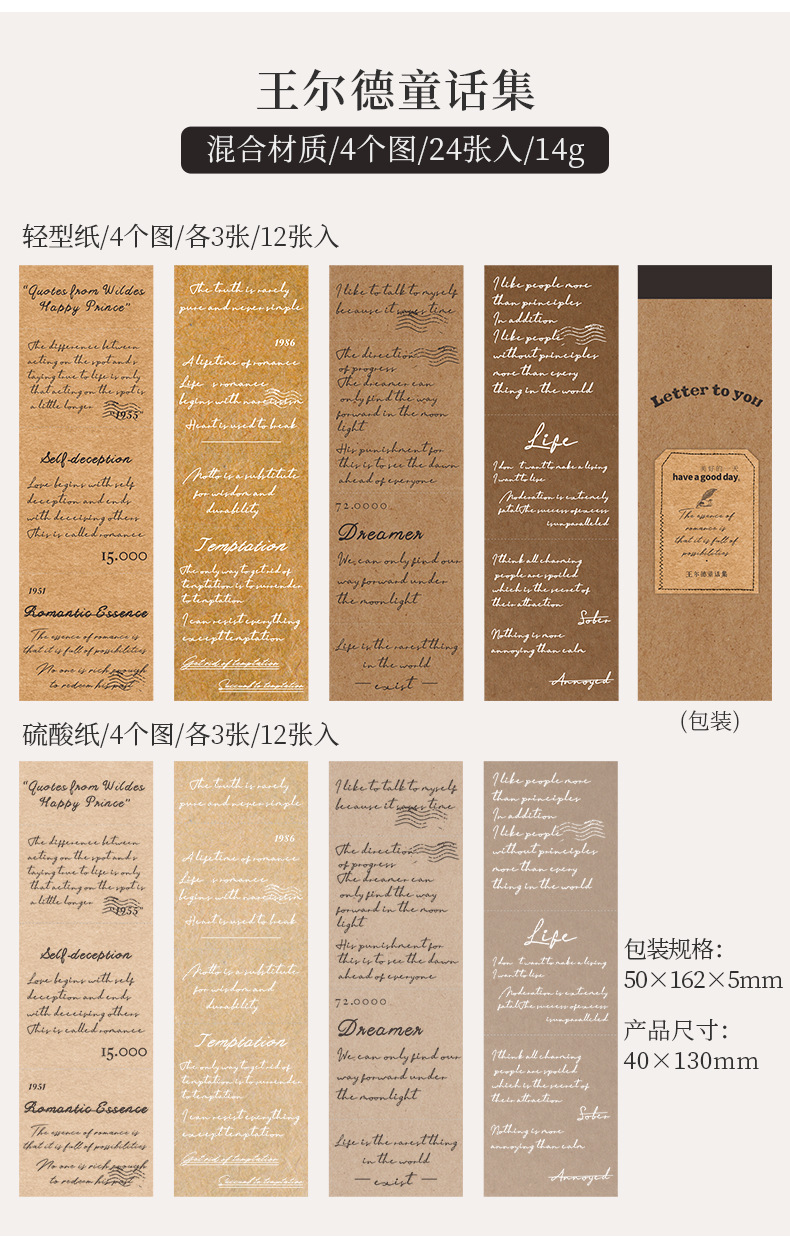 王尔德童话集
混合材质/4个图/24张入/14g
轻型纸/4个图/各3张/12张入
"Quotes from Wildes
Happy Prince"
The difference between
acting on the spot and s
taying true to life is only
that acting on the spot is
a little longer
1955"
Self-deception
Love begins with self
deception and ends
with deceiving others
This is called romance
15.000
1951
Romantic Essence
The essence of romance is
that it is full of possibilities
No one is rich enough
to redeem his past
The truth is rarely
pure and never simple
1986
A lifetime of romance
Life s romance
begins with narcissism
Heart is used to break
Motto is a substitute
for wisdom and
durability
Temptation
The only way to get rid of
temptation is to surrender
to temptation
I can resist everything
except temptation
Get rid of temptation
Succumb to temptation
I like to talk to myself
because it saves time
The direction
of progress
The dreamer can
only find the way
forward in the moon
light
His punishment for
this is to see the dawn
ahead of everyone
72.0000
Dreamer
We can only find our
way forward under
the moonlight
Life is the rarest thing
in the world
exist
I like people more
than principles
In addition
I like people
without principles
more than every
thing in the world
Life
I don t want to make a living
I want to live
Moderation is extremely
fatal The success of excess
is unparalleled
I think all charming
people are spoiled
which is the secret of
their attraction
Sober
Nothing is more
annoying than calm
Annoyed
Letter to you
美好的一天
have a good day.
The essence of
romance is
that it is full of
possibilities
王尔德童话集
(包装)
硫酸纸/4个图/各3张/12张入
"Quotes from Wildes
Happy Prince"
The difference between
acting on the spot and s
taying true to life is only
that acting on the spot is
a little longer
1955"
Self-deception
Love begins with self
deception and ends
with deceiving others
This is called romance
15.000
1951
Romantic Essence
The essence of romance is
that it is full of possibilities
No one is rich enough
to redeem his past
The truth is rarely
pure and never simple
1986
A lifetime of romance
Life s romance
begins with narcissism
Heart is used to break
Motto is a substitute
for wisdom and
durability
Temptation
The only way to get rid of
temptation is to surrender
to temptation
I can resist everything
except temptation
Get rid of temptation
Succumb to temptation
I like to talk to myself
because it saves time
The direction
of progress
The dreamer can
only find the way
forward in the moon
light
His punishment for
this is to see the dawn
ahead of everyone
72.0000
Dreamer
We can only find our
way forward under
the moonlight
Life is the rarest thing
in the world
exist
I like people more
than principles
In addition
I like people
without principles
more than every
thing in the world
Life
I don t want to make a living
I want to live
Moderation is extremely
fatal The success of excess
is unparalleled
I think all charming
people are spoiled
which is the secret of
their attraction
Sober
Nothing is more
annoying than calm
Annoyed
包装规格：
50×162×5mm
产品尺寸：
40×130mm